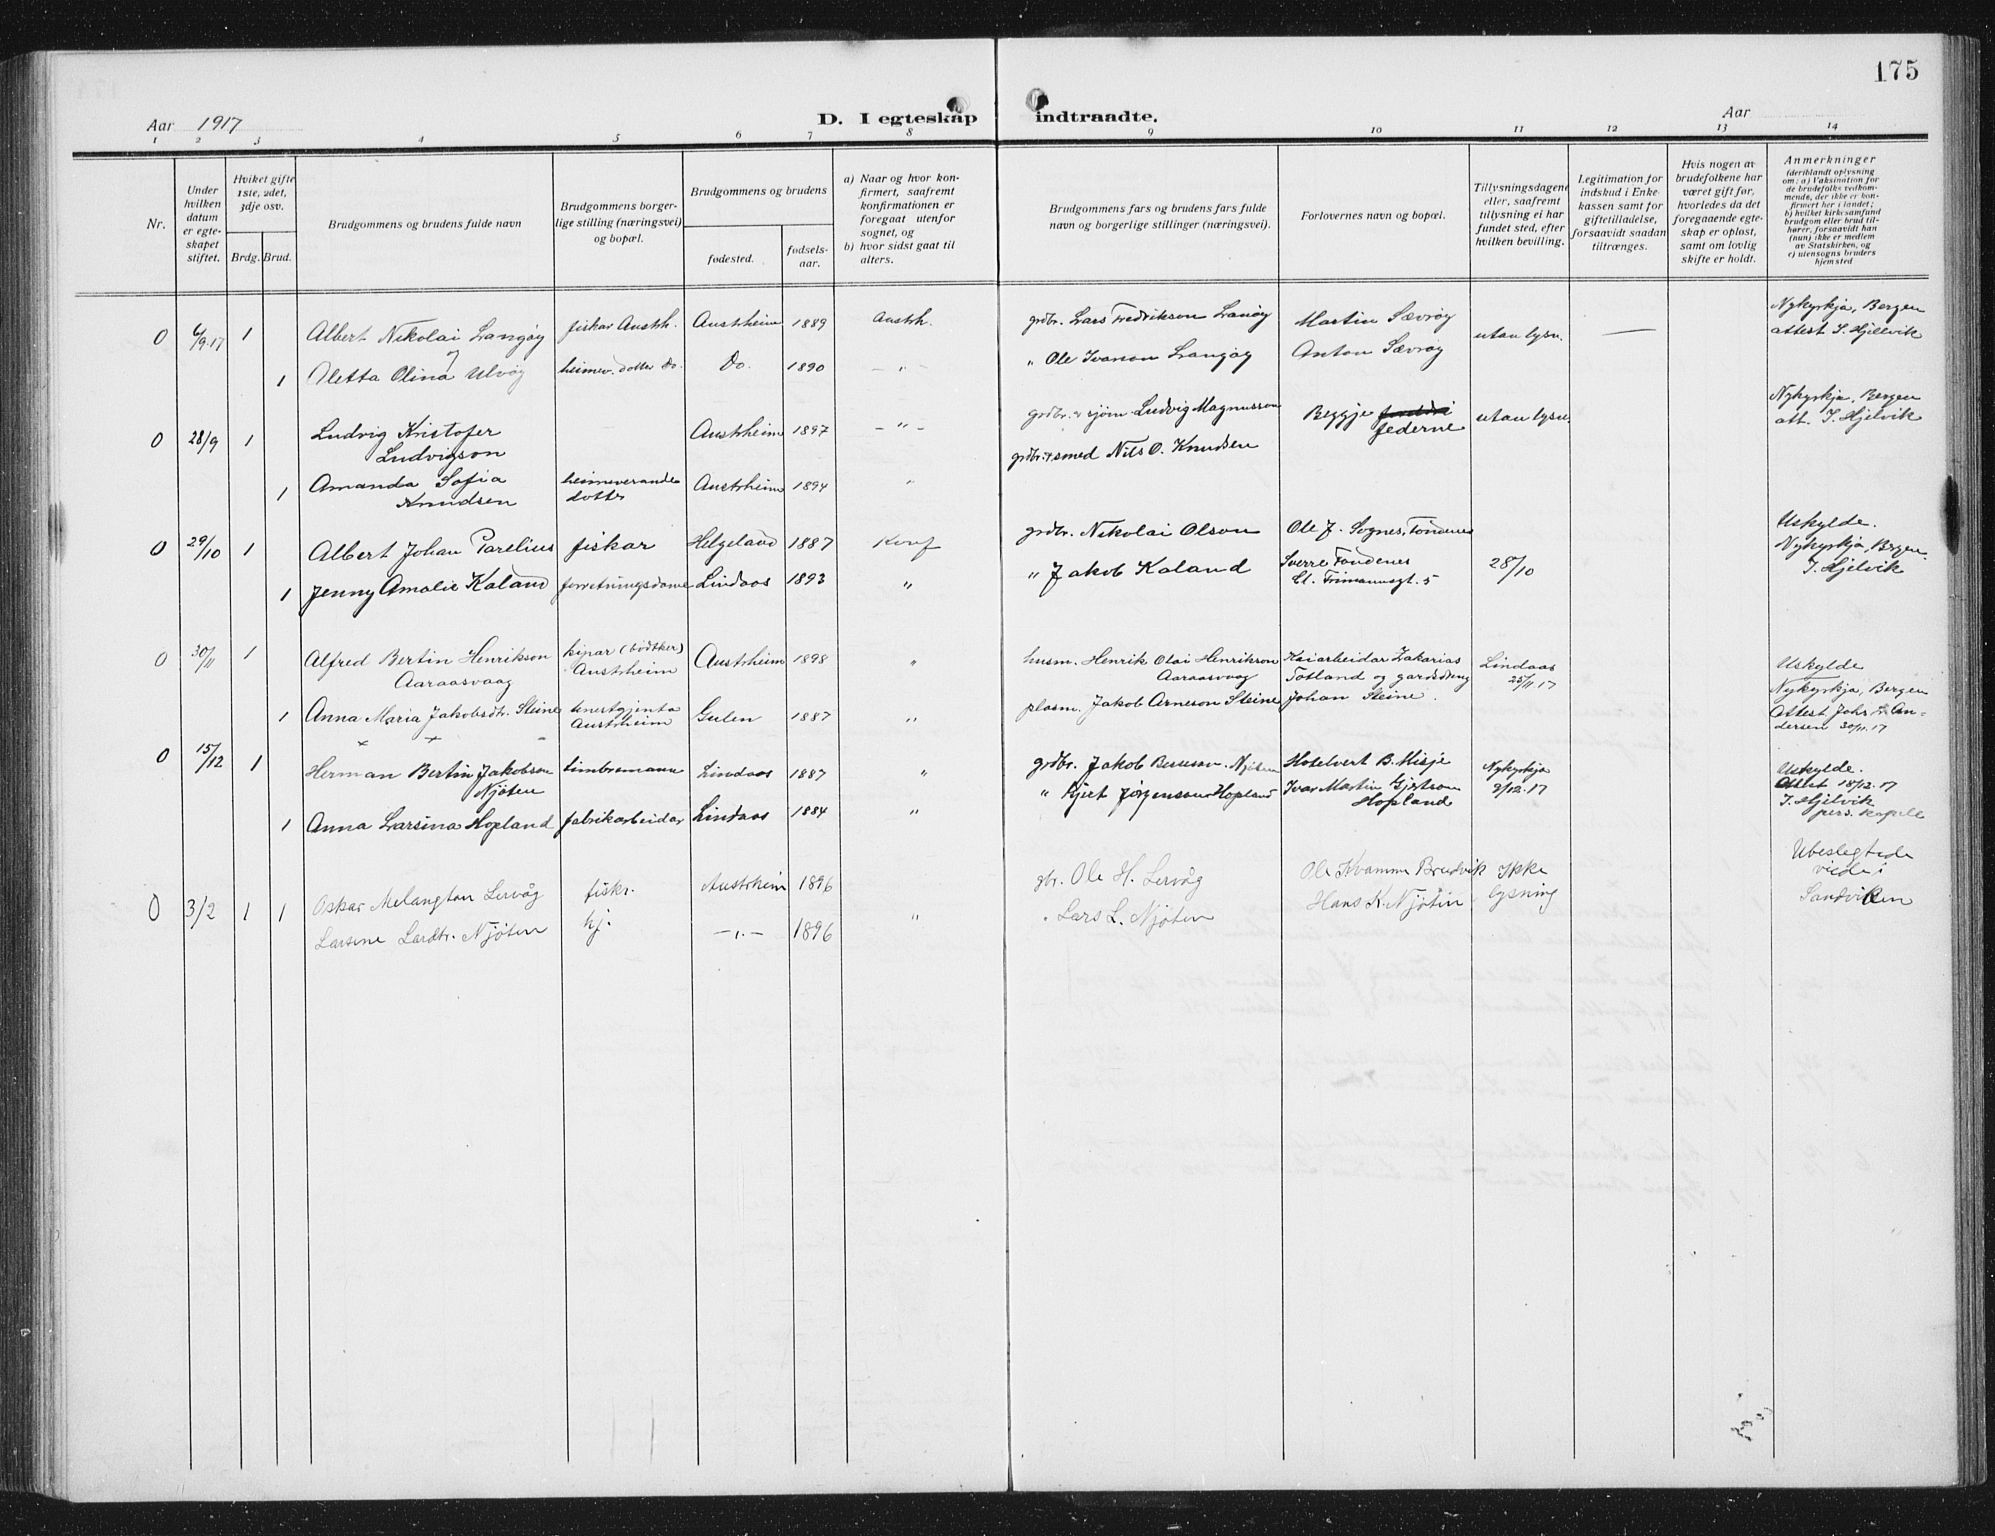 175
Aar 1917
D. I egteskap indtraadte.
Aar
1 2 3 4 5 6 7 8 9 10 11 12 13 14
Nr.
Under hvilken datum er egte-skapet stiftet.
Hviket gifte 1ste, 2det, 3dje osv.
Brdg. Brud.
Brudgommens og brudens fulde navn
Brudgommens borger-lige stilling (næringsvei) og bopæl.
Brudgommens og brudens
fødested.
fødsels-aar.
a) Naar og hvor kon-firmert, saafremt konfirmationen er foregaat utenfor sognet, og
b) hvor sidst gaat til alters.
Brudgommens fars og brudens fars fulde navn og borgerlige stillinger (næringsvei).
Forlovernes navn og bopæl.
Tillysningsdagene eller, saafremt tillysning ei har fundet sted, efter hvilken bevilling.
Legitimation for indskud i Enke-kassen samt for giftetilladelse, forsaavidt saadan tiltrænges.
Hvis nogen av brudefolkene har været gift før, hvorledes da det foregaaende egte-skap er opløst, samt om lovlig skifte er holdt.
Anmerkninger (deriblandt oplysning om: a) Vaksination for de brudefolks vedkom-mende, der ikke er kon-firmert her i landet; b) hvilket kirkesamfund brudgom eller brud til-hører, forsaavidt han (hun) ikke er medlem av Statskirken, og c) utensogns bruders hjemsted
0 6/9.17 1 Albert Nikolai Langøy fiskar Austrh. Austrheim 1889 Austrh. grdbr. Lars Fredrikson Lanøy Martin Sævrøy utan lysn. — Nykyrkja, Bergen
attest I. Hjellvik
1 Aletta Olina Ulvøy heimev. dotter Do. Do. 1890 — " — " Ole Ivarson Langøy Anton Sævrøy
0 28/9 1 Ludvig Kristofer Ludvigson Austrheim 1897 — " — grdbr. & sjøm. Ludvig Magnusson Beggje federne utan lysn. Nykyrkja, Bergen
att. I. Hjelvik
1 Amanda Sofia Knudsen heimeverande dotter Austrheim 1894 " grdbr. & smed Nils O. Knudsen
0 29/10 1 Albert Johan Parelius fiskar Helgeland 1887 Konf grdbr. Nikolai Olson Ole J. Sognes, Fondenes Uskylde.
Nykyrkja, Bergen.
I. Hjelvik
1 Jenny Amalie Kaland forretningsdame Lindaas 1893 " " Jakob Kaland Sverre Fondenes 28/10
0 30/11 1 Alfred Bertin Henrikson Aaraasvaag kipar (bødtker) Austrheim Austrheim 1898 " husm. Henrik Olai Henrikson Aaraasvaag Kaiarbeidar Zakarias Totland og Lindaas 25/11.17 Uskylde
Nykyrkja, Bergen
Attest Johs An-
dersen 30/11.17
1 Anna Maria Jakobsdtr. Steine tenestgjenta Austrheim Gulen 1887 " plasm. Jakob Arneson Steine Johan Steine.
0 15/12 1 Herman Bertin Jakobson Njøten timbremann Lindaas 1887 " grdbr. Jakob Hotelvert B. Misje Nykyrkja 9/12.17 Uskylde.
Attest 18/12.17
I. Hjelvik
pers. kapele
1 Anna Larsina Hopland fabrikarbeidar Lindaas 1884 " " Gjert Jørgenson Hopland Ivar Martin Gjertson Hopland
0 3/2 1 1 Oskar Melangton Lervåg fiskr. Austrheim 1896 gbr. Ole H. Lervåg Ole Kvamme Brudvik Ikke lysning Ubeslegtede
viede i
Sandviken
Larsine Larsdtr. Njøten hj. —"— 1896 " Lars L. Njøten Hans K. Njøtin